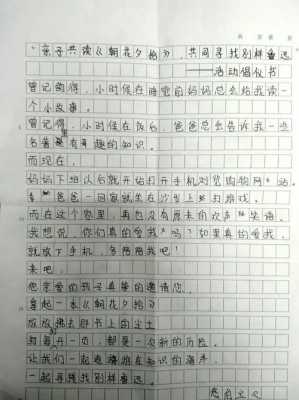 "亲子共读《朝花夕拾》，共同寻找别样鲁迅
——活动倡议书
曾记的得，小时候在睡觉前妈妈总会给我读一
个小故事。
曾记得，小时候在饭后，爸爸总会告诉我一些
名著里有趣的知识。
而现在，
妈妈下班以后就开始打开手机浏览购物网站，
爸爸一回家就坐在沙发上打游戏。
而在这个家里，再也没有原来的欢声笑语。
我想说，你们真的爱我吗？如果真的爱我，
就放下手机，多陪陪我吧！
来吧，
您亲爱的孩子真挚的邀请您，
拿起一本《朝花夕拾》
放放书上的尘土
每每开一页，都是一次新的历险。
让我们一起遨游在知识的海洋
一起寻找别样鲁迅。